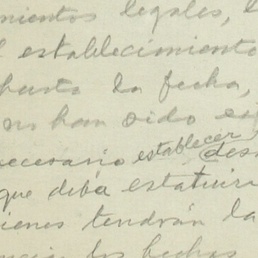 mientos legales,
establecimiento
hasta la fecha,
no han sido
necesario establecer
que deba estatuirse
quienes tendrán la
los hechos